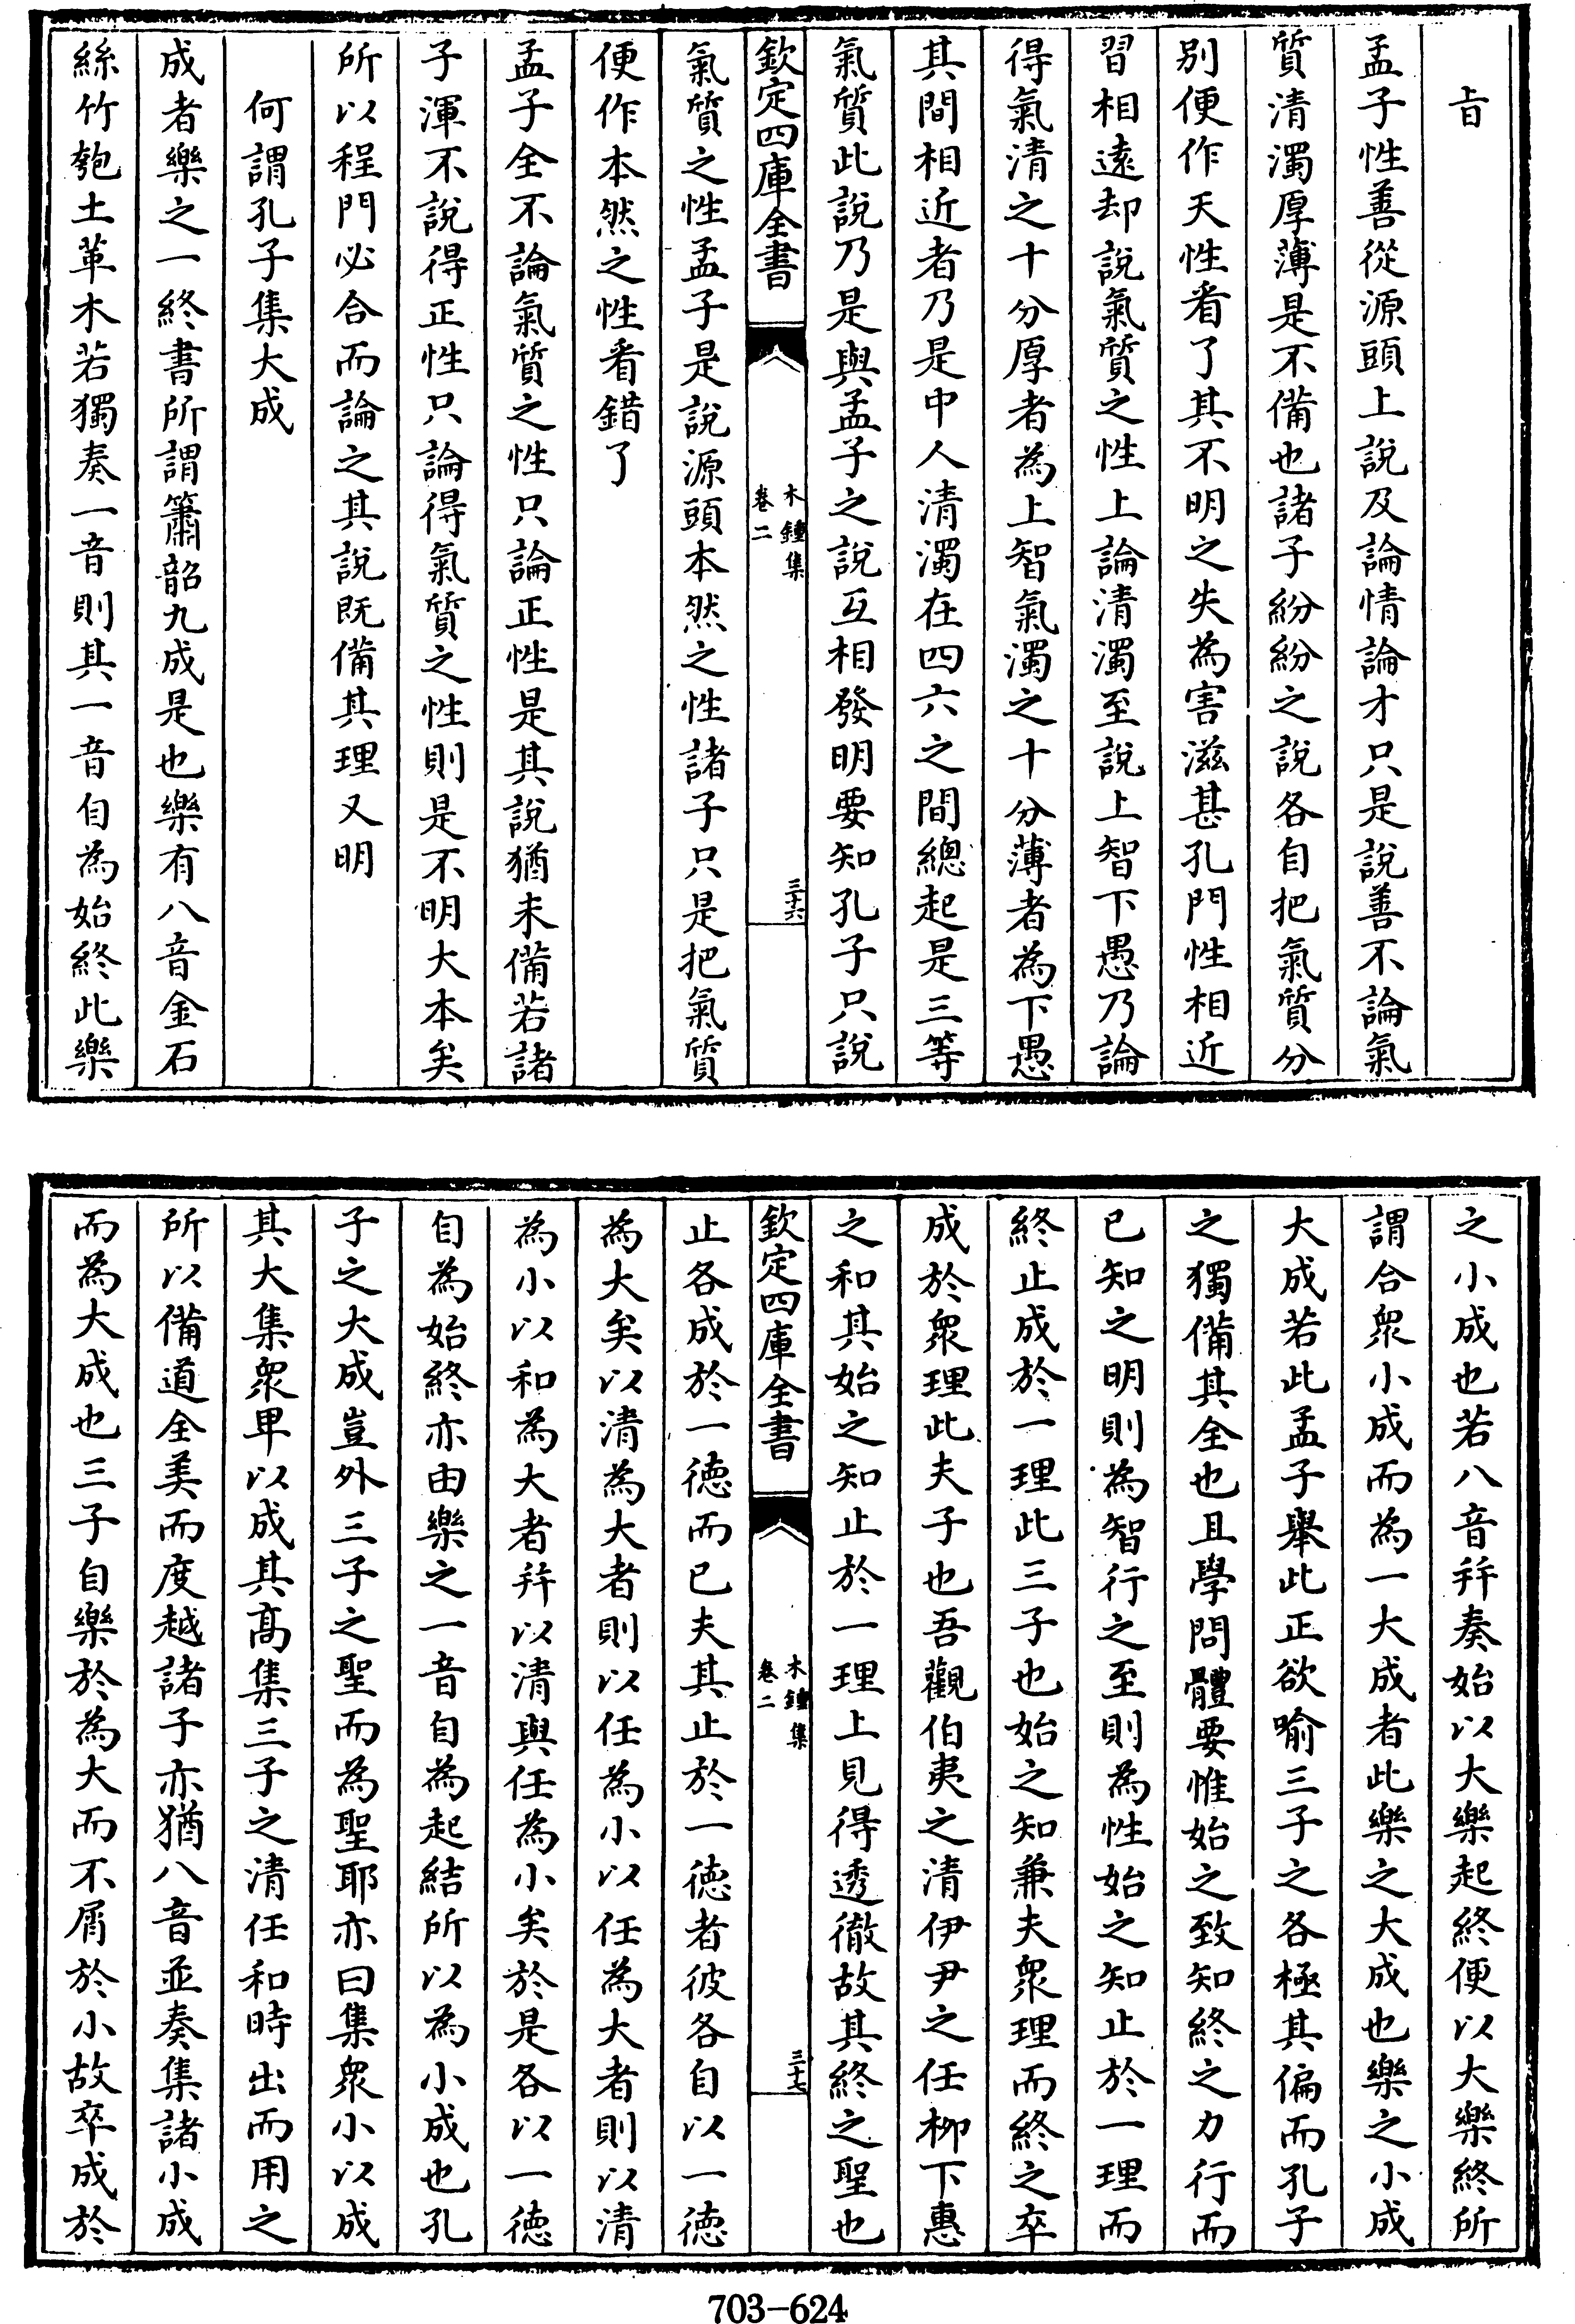 㫖
孟子性善從源頭上說及論情論才只是說善不論氣
質清濁厚薄是不備也諸子紛紛之說各自把氣質分
别便作天性看了其不明之失為害滋甚孔門性相近
習相逺却說氣質之性上論清濁至說上智下愚乃論
得氣清之十分厚者為上智氣濁之十分薄者為下愚
其間相近者乃是中人清濁在四六之間總起是三等
氣質此說乃是與孟子之說互相發明要知孔子只說
欽定四庫全書
木鍾集
卷二
三十六
氣質之性孟子是說源頭本然之性諸子只是把氣質
便作本然之性看錯了
孟子全不論氣質之性只論正性是其說猶未備若諸
子渾不說得正性只論得氣質之性則是不明大本矣
所以程門必合而論之其說既備其理又明
何謂孔子集大成
成者樂之一終書所謂簫韶九成是也樂有八音金石
絲竹匏土革木若獨奏一音則其一音自為始終此樂
之小成也若八音并奏始以大樂起終便以大樂終所
謂合衆小成而為一大成者此樂之大成也樂之小成
大成若此孟子舉此正欲喻三子之各極其偏而孔子
之獨備其全也且學問體要惟始之致知終之力行而
已知之明則為智行之至則為性始之知止於一理而
終止成於一理此三子也始之知兼夫衆理而終之卒
成於衆理此夫子也吾觀伯夷之清伊尹之任柳下惠
之和其始之知止於一理上見得透徹故其終之聖也
欽定四庫全書
木鍾集
卷二
三十七
止各成於一徳而已夫其止於一徳者彼各自以一徳
為大矣以清為大者則以任為小以任為大者則以清
為小以和為大者并以清與任為小矣於是各以一徳
自為始終亦由樂之一音自為起結所以為小成也孔
子之大成豈外三子之聖而為聖耶亦曰集衆小以成
其大集衆卑以成其髙集三子之清任和時出而用之
所以備道全美而度越諸子亦猶八音並奏集諸小成
而為大成也三子自樂於為大而不屑於小故卒成於
703-624